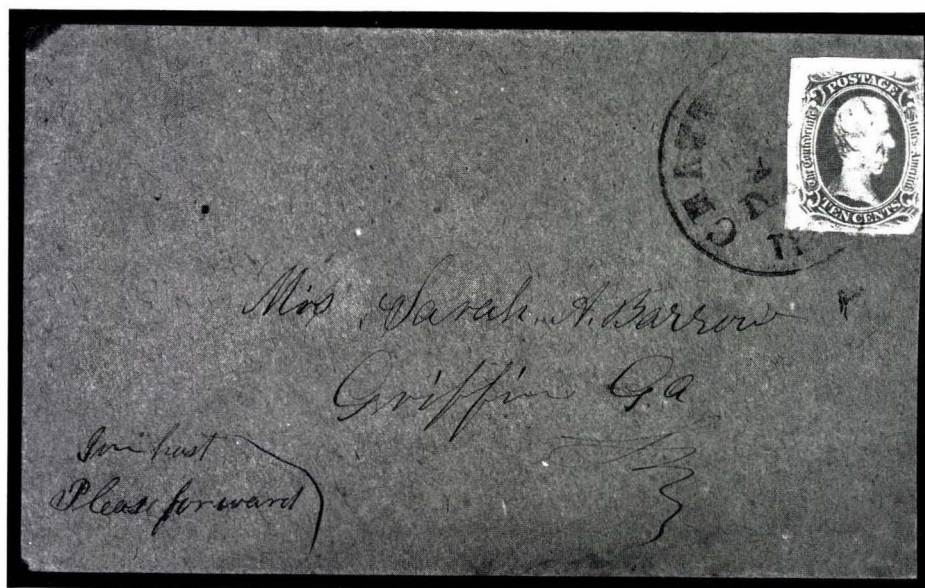 POSTAGE
The Confederate States America
TEN CENTS
Miss Sarah A. Barrow
Griffin Ga
Please forward